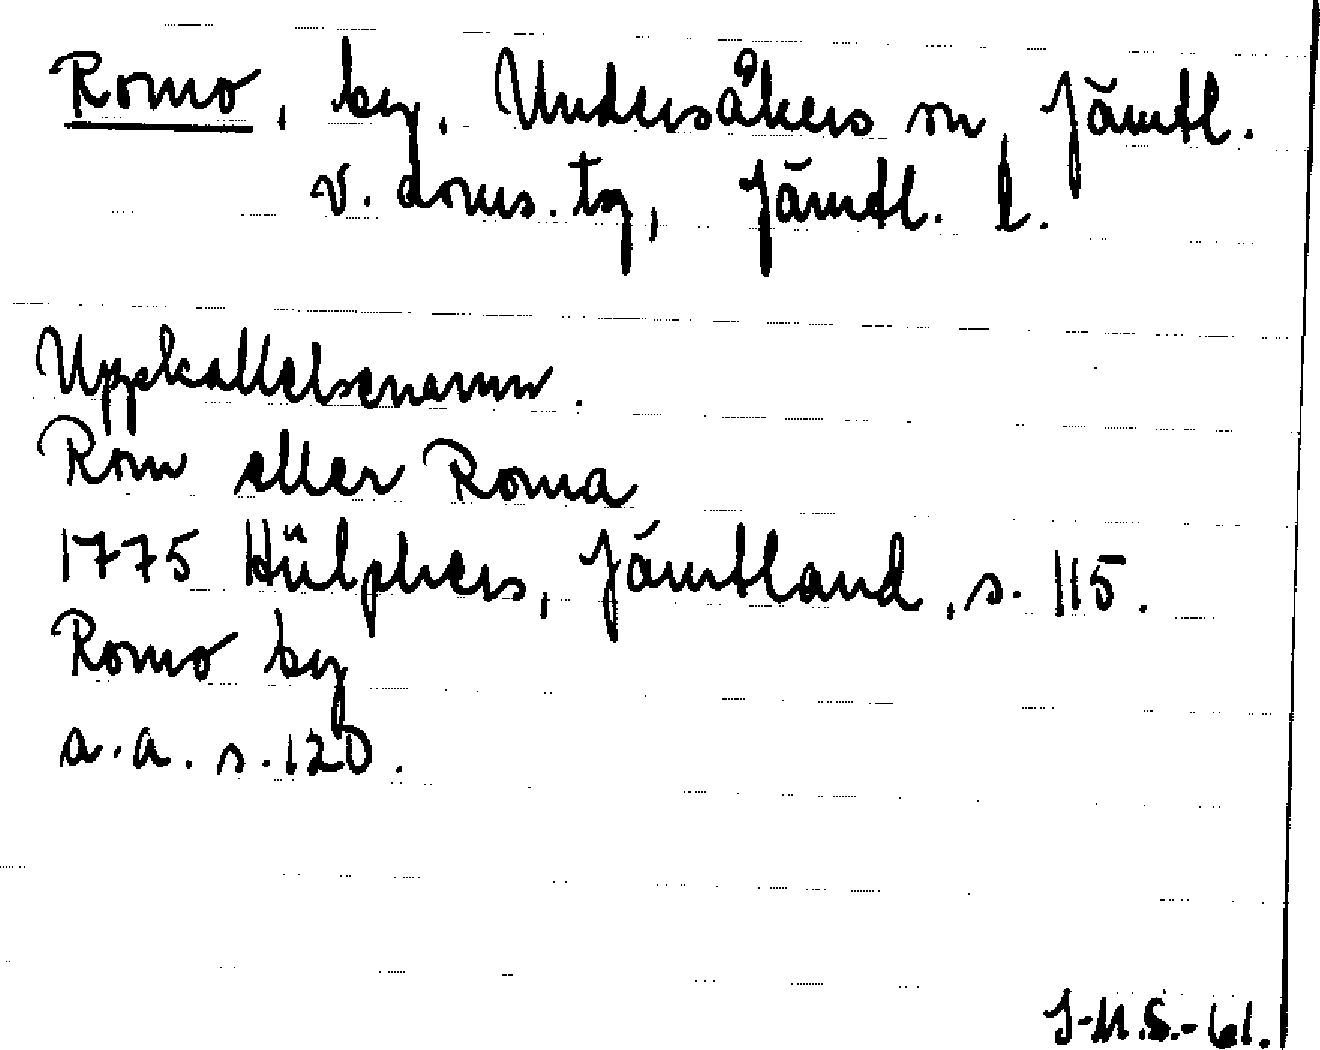 Romo, by, Undersåkers sn, Jämtl.
v. doms. tg, Jämtl. l.
Uppkallelsenamn.
Rom eller Roma
1775 Hülphers, Jämtland, s. 115.
Romo by
a.a. s. 120.
J-M.S.-61.